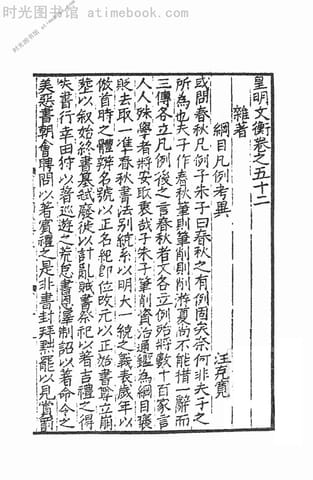 时光图书馆 www.atimebook.com
皇明文衡卷之五十二
雜著
綱目凡例考異 汪克寬
或問春秋凡例子朱子曰春秋之有例固矣奈何非夫子之
所為也夫子作春秋筆則筆削則削游夏尚不能措一辭而
三傳各立凡例後之言春秋者又各立例殆將數十百家言
人人殊學者將安取衷哉子朱子筆削資治通鑑為綱目褒
貶去取一準春秋書法別統系以明大一統之義表歲年以
倣首時之體辨名號以正名紀即位改元以正始書尊立崩
塟以叙始終書墓弑廢徙以討亂賊書祭祀以著吉禮之得
失書行幸田狩以著巡遊之荒怠書恩澤制詔以著命令之
美惡書朝會聘問以著賓禮之是非書封拜黜罷以見賞罰